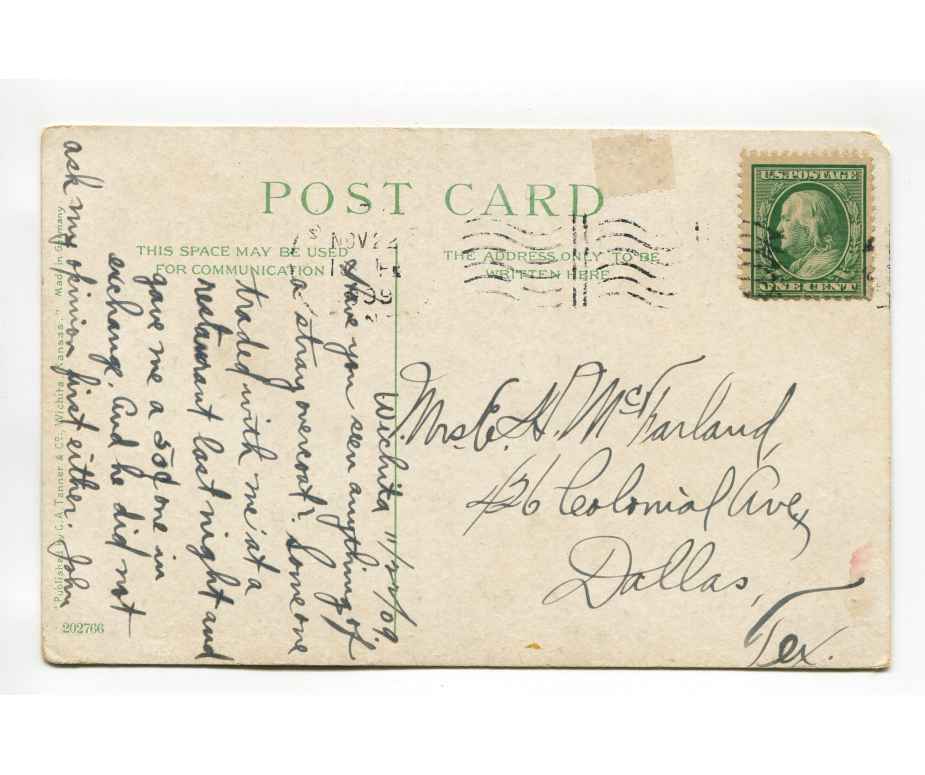 POST CARD
THIS SPACE MAY BE USED
FOR COMMUNICATION
THE ADDRESS ONLY TO BE
WRITTEN HERE
NOV 22
U.S. POSTAGE
ONE CENT
Wichita 11/22/09
Have you seen anything of
a stray overcoat? Someone
traded with me at a
restaurant last night and
gave me a 50¢ one in
exchange. And he did not
ask my opinion first either. John
Mrs. E. H. McFarland,
426 Colonial Ave,
Dallas,
Tex.
"Published by C. A. Tanner & Co., Wichita, Kansas." Made in Germany
202766